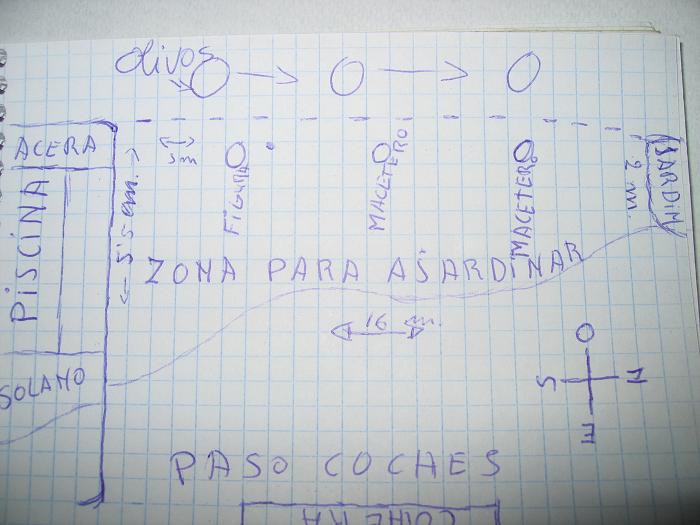 Olivos
ACERA
5 m
5'5 em.
FIGURA
MACETERO
MACETERO
JARDIN
2 m.
PISCINA
ZONA PARA AJARDINAR
16 m.
SOLANO
O
S
N
E
PASO COCHES